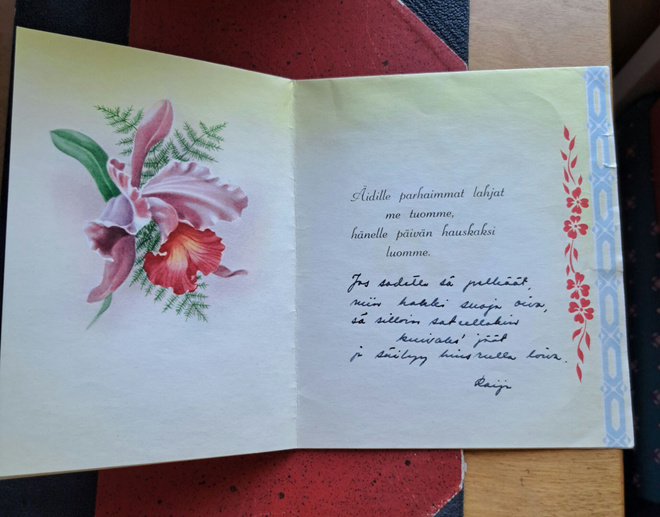 Äidille parhaimmat lahjat
me tuomme,
hänelle päivän hauskaksi
luomme.
Jos sadetta sä pelkäät,
niin hattu suoja oiva,
sä silloin sateellakin
kuivaks' jäät
ja säilyy hius sulla
Raija